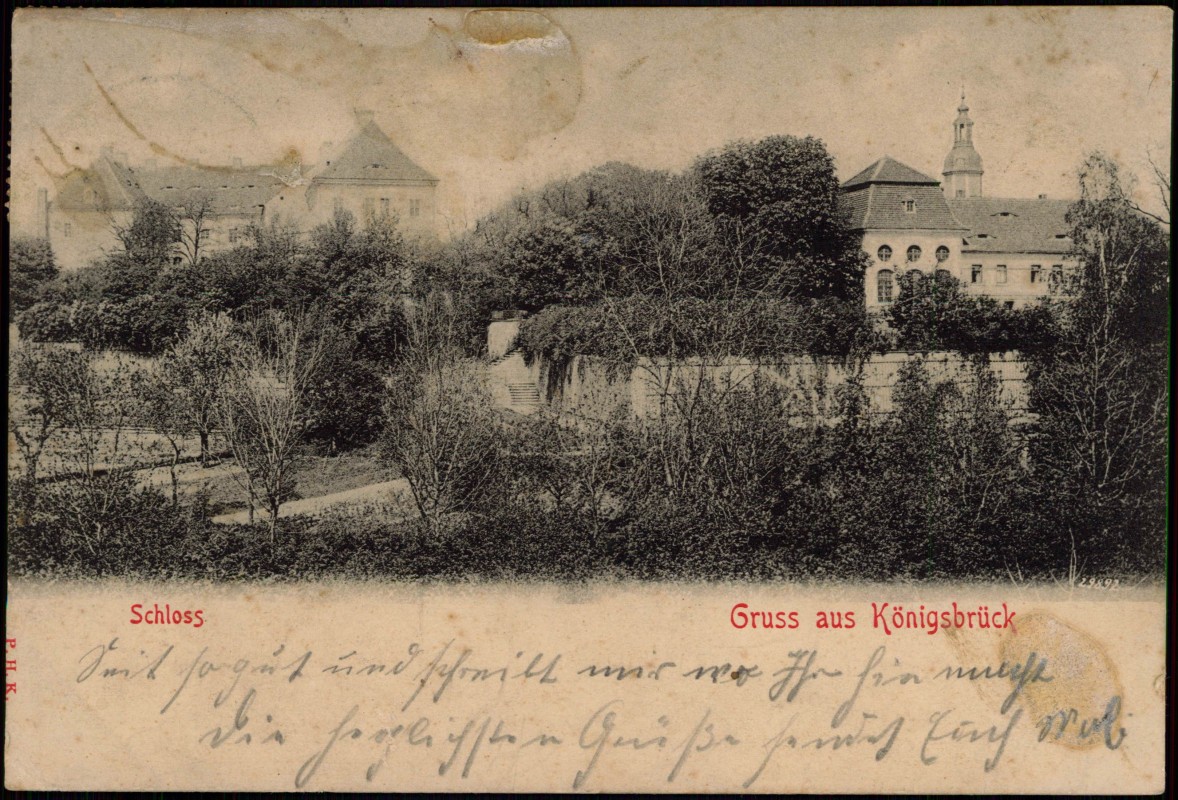 29892
Schloss.
Gruss aus Königsbrück
P. H. K.
Seit so gut und schreibt mir wo Ihr hin macht
die herzlichsten Grüße sendet Euch